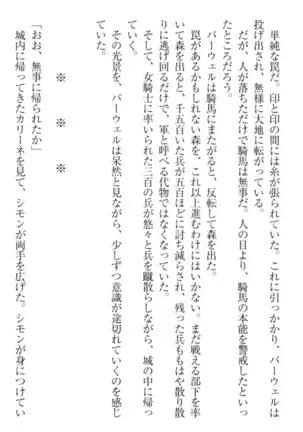 単純な罠だ。印と印の間には糸が張られていた。これに引っかかり、バーウェルは
投げ出され、無様に大地に転がっている。
だが、人が落ちただけで騎馬は無事だ。人の目より、騎馬の本能を警戒したといっ
たところだろう。
バーウェルは騎馬にまたがると、反転して森を出た。
罠があるかもしれない森を、これ以上進むわけにはいかない。まだ戦える部下を率
いて森を出ると、千五百いた兵が五百ほどに討ち減らされ、残った兵ももはや散り散
りに逃げ回るだけで、軍と呼べる代物ではなくなっていた。
そして、女騎士に率いられた三百の兵が悠々と兵を蹴散らしながら、城の中に帰っ
ていく。
その光景を、バーウェルは呆然と見ながら、少しずつ意識が途切れていくのを感じ
ていた。
※　※　※
「おお、無事に帰られたか」
城内に帰ってきたカリーネを見て、シモンが両手を広げた。シモンが身につけてい